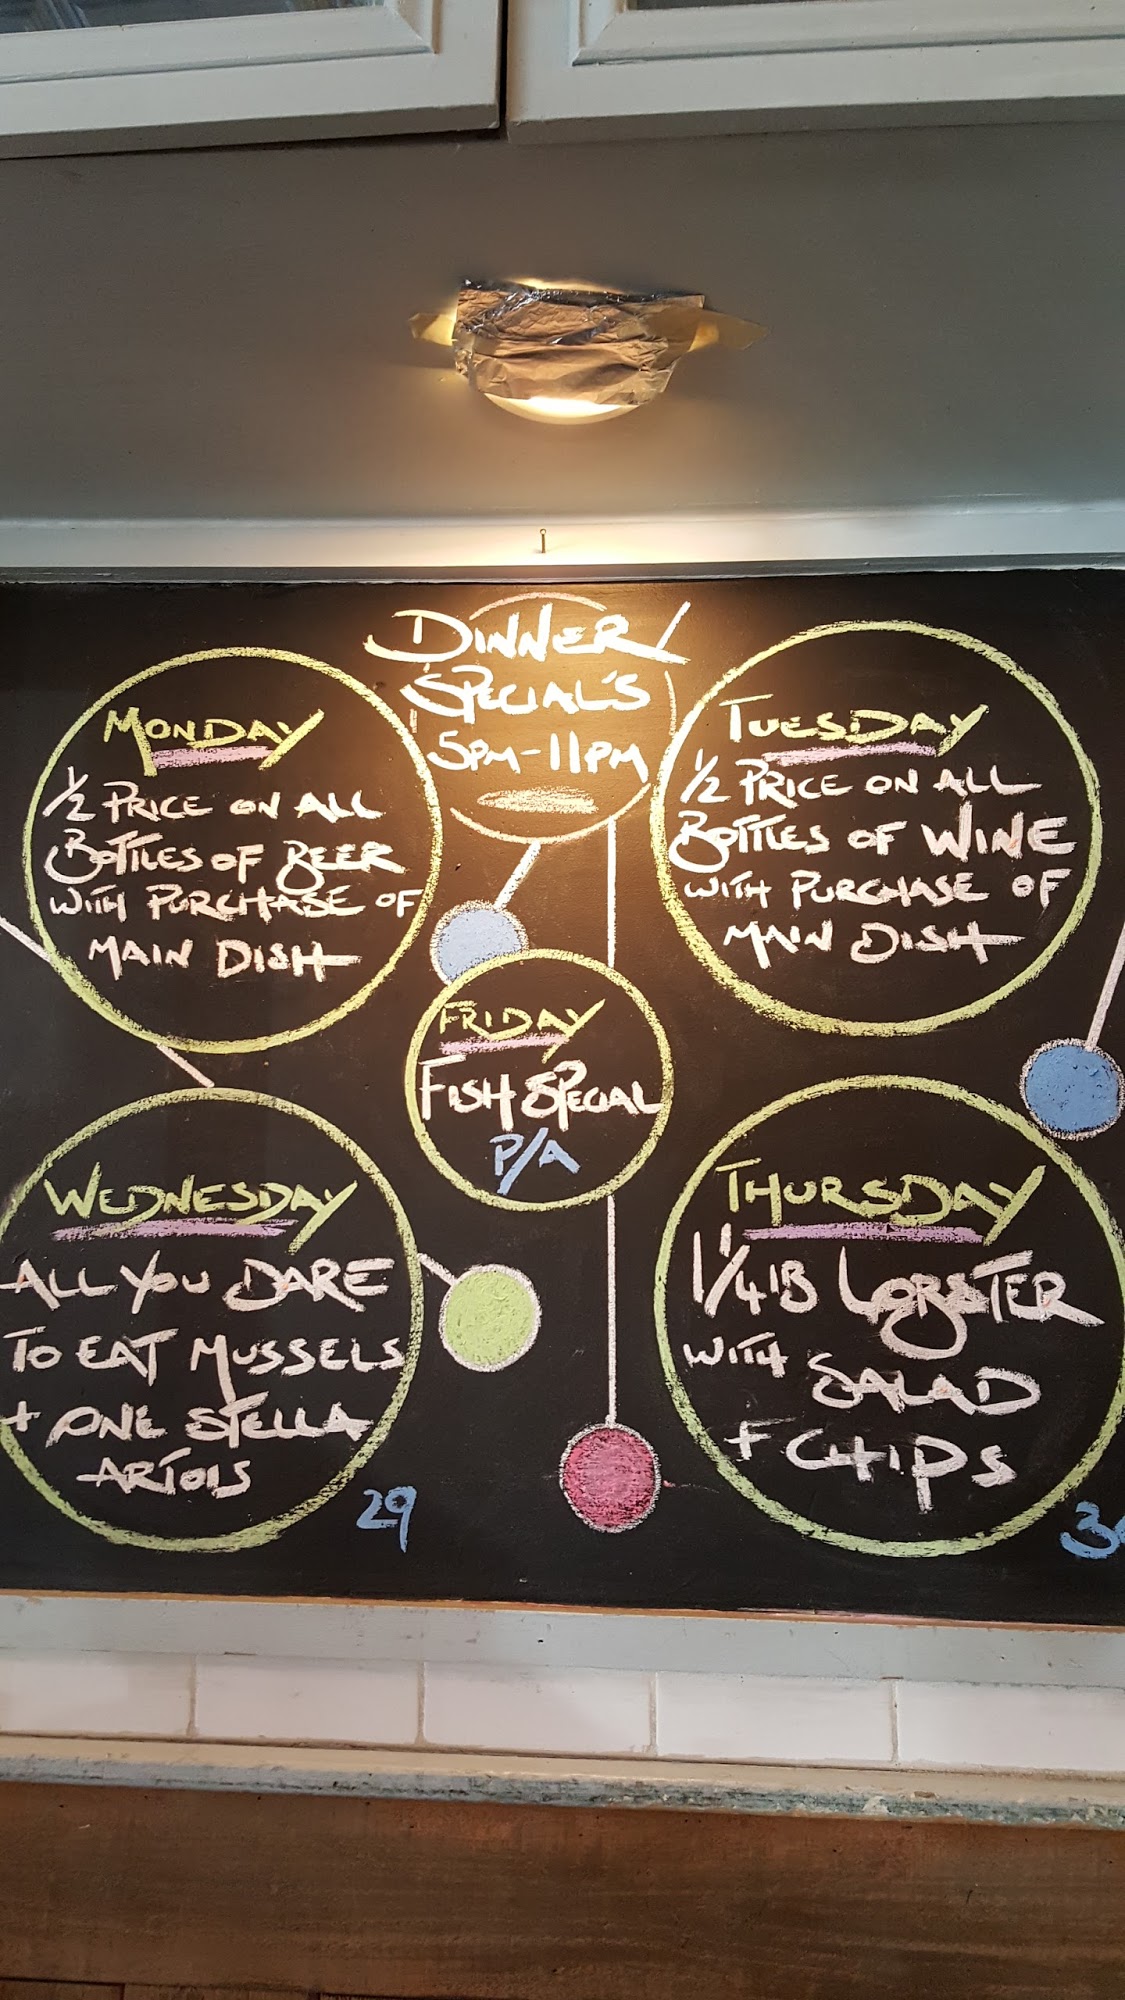 DINNER
SPECIAL'S
5PM-11PM
MONDAY
1/2 PRICE ON ALL
BOTTLES OF BEER
WITH PURCHASE OF
MAIN DISH
TUESDAY
1/2 PRICE ON ALL
BOTTLES OF WINE
WITH PURCHASE OF
MAIN DISH
FRIDAY
FISH SPECIAL
P/A
WEDNESDAY
ALL YOU DARE
TO EAT MUSSELS
+ ONE STELLA
ARTOIS
29
THURSDAY
1 1/4 lB LOBSTER
WITH SALAD
+ CHIPS